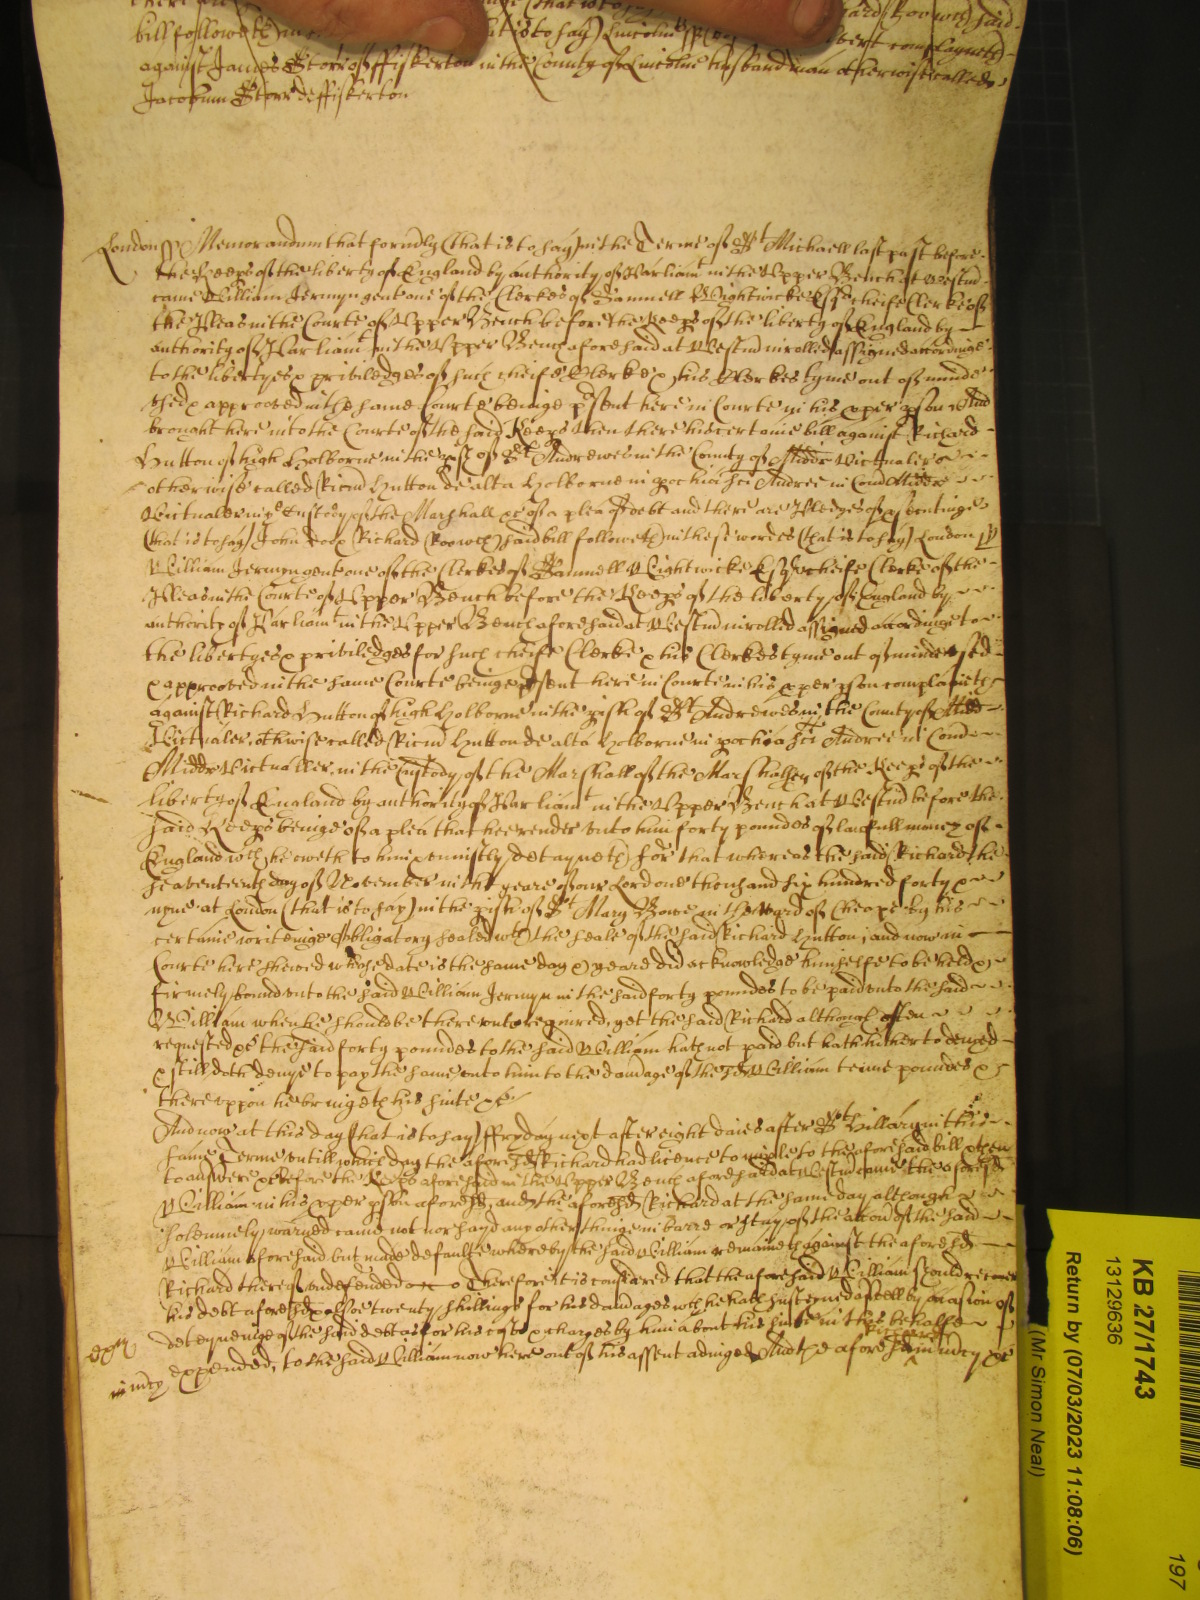 bill followeth in
is to say) Lincolne ss
against James Storr of ffiskerton in the County of Lincolne husbandman otherwise called
Jacobum Storr de ffiskerton
London ss Memorandum that formerly (that is to say) in the Terme of St Michaell last past before
the Keeps of the liberty of England by authority of Parliamt in the Upper Bench at Westmr
came William Jermyn gent one of the Clerkes of Samuell Wightwicke Esqr cheife Clerke of
the Pleas in the Courte of Upper Bench before the Keeps of the liberty of England by
authority of Parliamt in the Upper Bench aforesaid at Westmr inrolled assigned accordinge
to the libertyes & priviledges of such cheife Clerke & his Clerkes tyme out of minde
used & approoved in the same Courte beinge psent here in Courte in his pper pson And
brought here into the Courte of the said Keeps then there his certaine bill against Richard
Hutton of high Holborne in the pish of St Andrewes in the County of Middx Victualer
otherwise called Ricm Hutton de alta Holborne in pochia sci Andree in Com Middx
Victualer in ye Custody of the Marshall &c of a plea of debt and there are Pledges of psecutinge
(that is to say) John Doe & Richard Roe wch said bill followeth in these wordes (that is to say) London ss
William Jermyn gent one of the Clerkes of Samuell Wightwicke Esqr cheife Clerke of the
Pleas in the Courte of Upper Bench before the Keeps of the liberty of England by
authority of Parliamt in the Upper Bench aforesaid at Westmr inrolled assigned accordinge to
the libertyes & priviledges for such cheife Clerke & his Clerkes tyme out of minde used
& approoved in the same Courte beinge psent here in Courte in his pper pson complaineth
against Richard Hutton of high Holborne in the pish of St Andrewes in the County of Midd
Victualer, othwise called Ricm Hutton de alta Holborne in pochia sci Andree in Com
Middx Victualler, in the Custody of the Marshall of the Marshallsey of the Keeps of the
liberty of England by authority of Parliamt in the Upper Bench at Westmr before the
said Keeps beinge of a plea that hee render unto him forty poundes of lawfull money of
England wch he oweth to him & uniustly detayneth for that whereas the said Richard the
seaventeenth day of November in the yeare of our Lord one thousand six hundred forty &
nyne at London (that is to say) in the pish of St Mary Bowe in the Ward of Cheape by his
certaine writeinge Obligatory sealed wth the seale of the said Richard Hutton and now in
Courte here shewed whose date is the same day & yeare did acknowledge himselfe to be held &
firmely bound unto the said William Jermyn in the said forty poundes to be paid unto the said
William when he should be thereunto required, yet the said Richard although often
requested &c the said forty poundes to the said William hath not paid but hath hitherto denyed
& still doth denye to pay the same unto him to the damage of the sd William tenne poundes &
thereuppon he bringeth his suite &c
And now at this day (that is to say) ffryday next after eight daies after St Hillary in this
same Terme untill which day the aforesd Richard had licence to imple to the aforesaid bill & then
to answere &c before the Keeps aforesaid in the Upper Bench aforesaid at Westmr came the aforesd
William in his pper pson aforesd, and the aforesd Richard at the same day although
solemnely warned came not nor sayd any other thinge in barre or stay of the accon of the said
William aforesaid but made default whereby the said William remaineth against the aforesd
Richard thereof undefended Therefore it is considered that the aforesaid William should recover
his debt aforesd & alsoe twenty shillings for his damages wch he hath susteyned aswell by occasion of
deteyneinge of the said debt as for his costs & charges by him about his suite in this behalfe
expended, to the said William now here out of his assent adiudged And ye aforesd Richard in mcy &c
in mcy
KB 27/1743
13129636
Return by (07/03/2023 11:08:06)
(Mr Simon Neal)
197